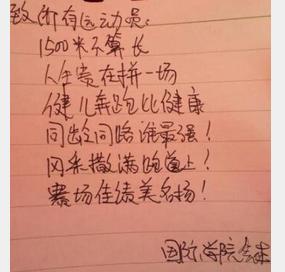 致所有运动员:
1500米不算长
人生贵在拼一场
健儿奔跑比健康
同龄同路谁最强!
风采撒满跑道上!
赛场佳绩美名扬!
国际学院